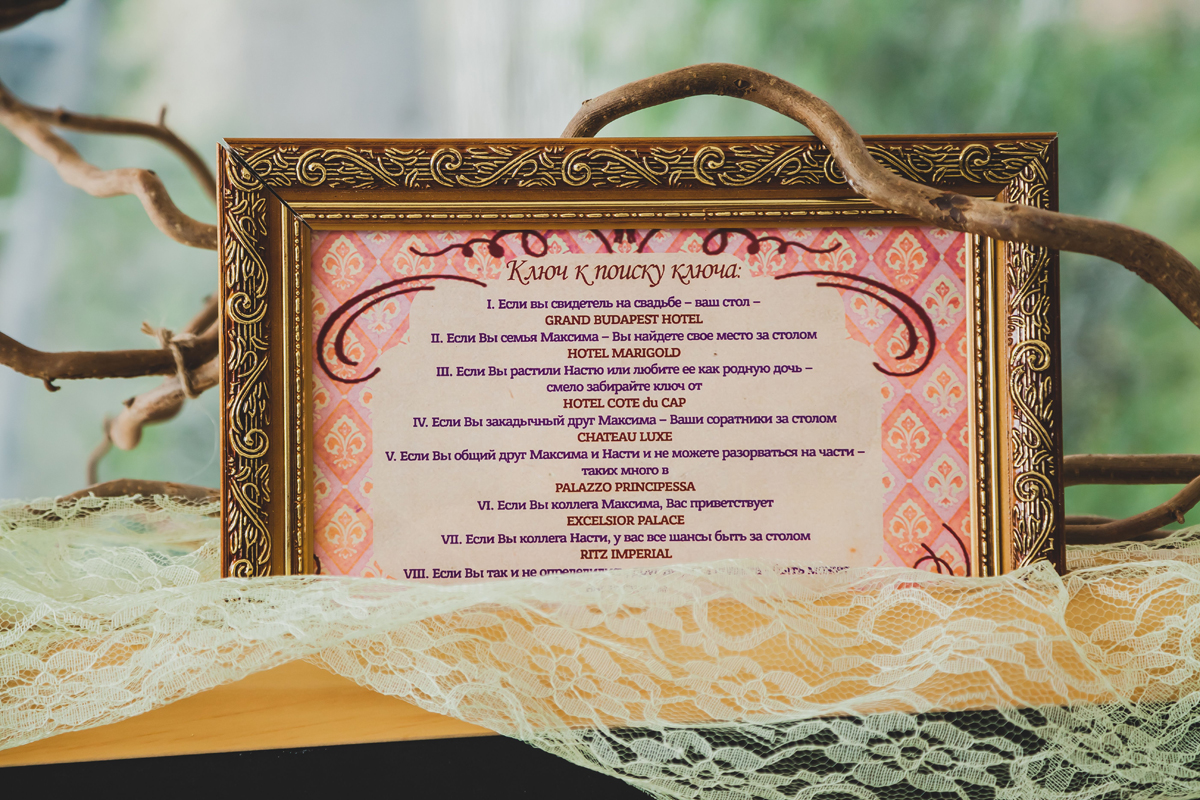 Ключ к поиску ключа:
I. Если вы свидетель на свадьбе – ваш стол –
GRAND BUDAPEST HOTEL
II. Если Вы семья Максима – Вы найдете свое место за столом
HOTEL MARIGOLD
III. Если Вы растили Настю или любите ее как родную дочь –
смело забирайте ключ от
HOTEL COTE du CAP
IV. Если Вы закадычный друг Максима – Ваши соратники за столом
CHATEAU LUXE
V. Если Вы общий друг Максима и Насти и не можете разорваться на части –
таких много в
PALAZZO PRINCIPESSA
VI. Если Вы коллега Максима, Вас приветствует
EXCELSIOR PALACE
VII. Если Вы коллега Насти, у вас все шансы быть за столом
RITZ IMPERIAL
VIII. Если Вы так и не